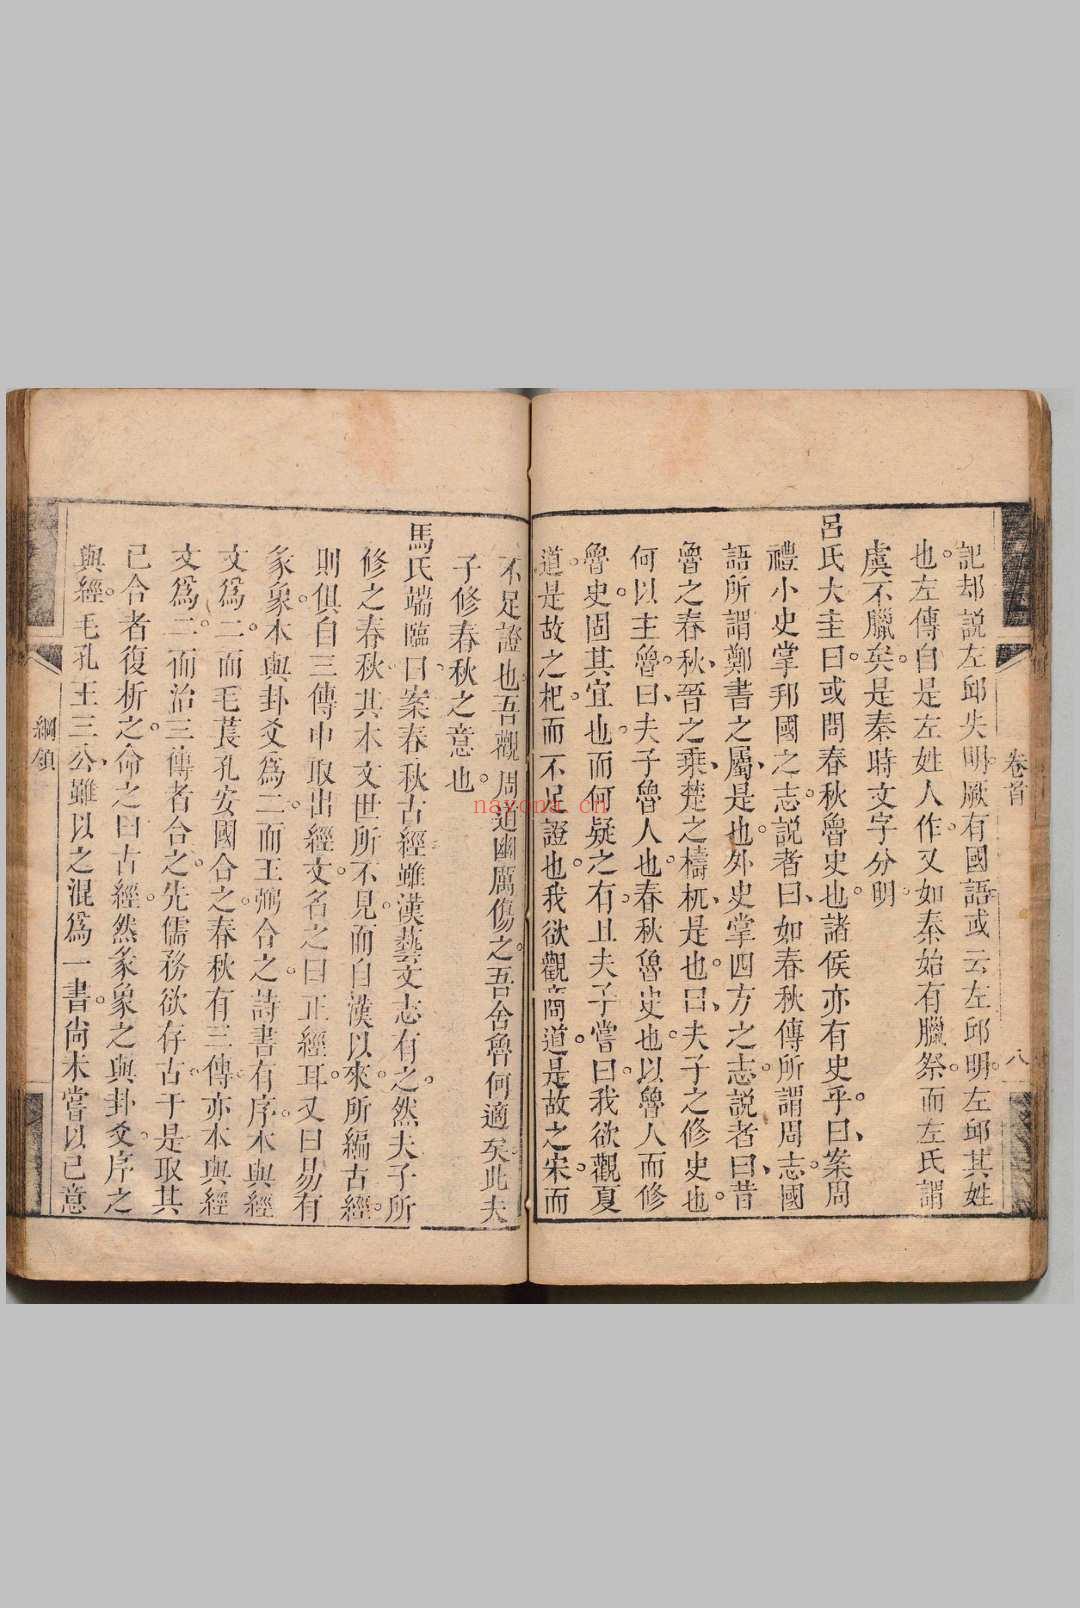 卷首
八
記却説左邱失明厥有國語或云左邱明左邱其姓
也左傳自是左姓人作又如秦始有臘祭而左氏謂
虞不臘矣是秦時文字分明
呂氏大圭曰或問春秋魯史也諸侯亦有史乎曰案周
禮小史掌邦國之志説者曰如春秋傳所謂周志國
語所謂鄭書之屬是也外史掌四方之志説者曰昔
魯之春秋晉之乘楚之檮杌是也曰夫子之修史也
何以主魯曰夫子魯人也春秋魯史也以魯人而修
魯史固其宜也而何疑之有且夫子嘗曰我欲觀夏
道是故之杞而不足證也我欲觀商道是故之宋而
不足證也吾觀周道幽厲傷之吾舍魯何適矣此夫
子修春秋之意也
馬氏端臨曰案春秋古經雖漢藝文志有之然夫子所
修之春秋其本文世所不見而自漢以來所編古經
則俱自三傳中取出經文名之曰正經耳又曰易有
彖象本與卦爻爲二而王弼合之詩書有序本與經
文爲二而毛萇孔安國合之春秋有三傳亦本與經
文爲二而治三傳者合之先儒務欲存古于是取其
已合者復析之命之曰古經然彖象之與卦爻序之
與經毛孔王三公雖以之混爲一書尚未嘗以己意
綱領
nayona.cn